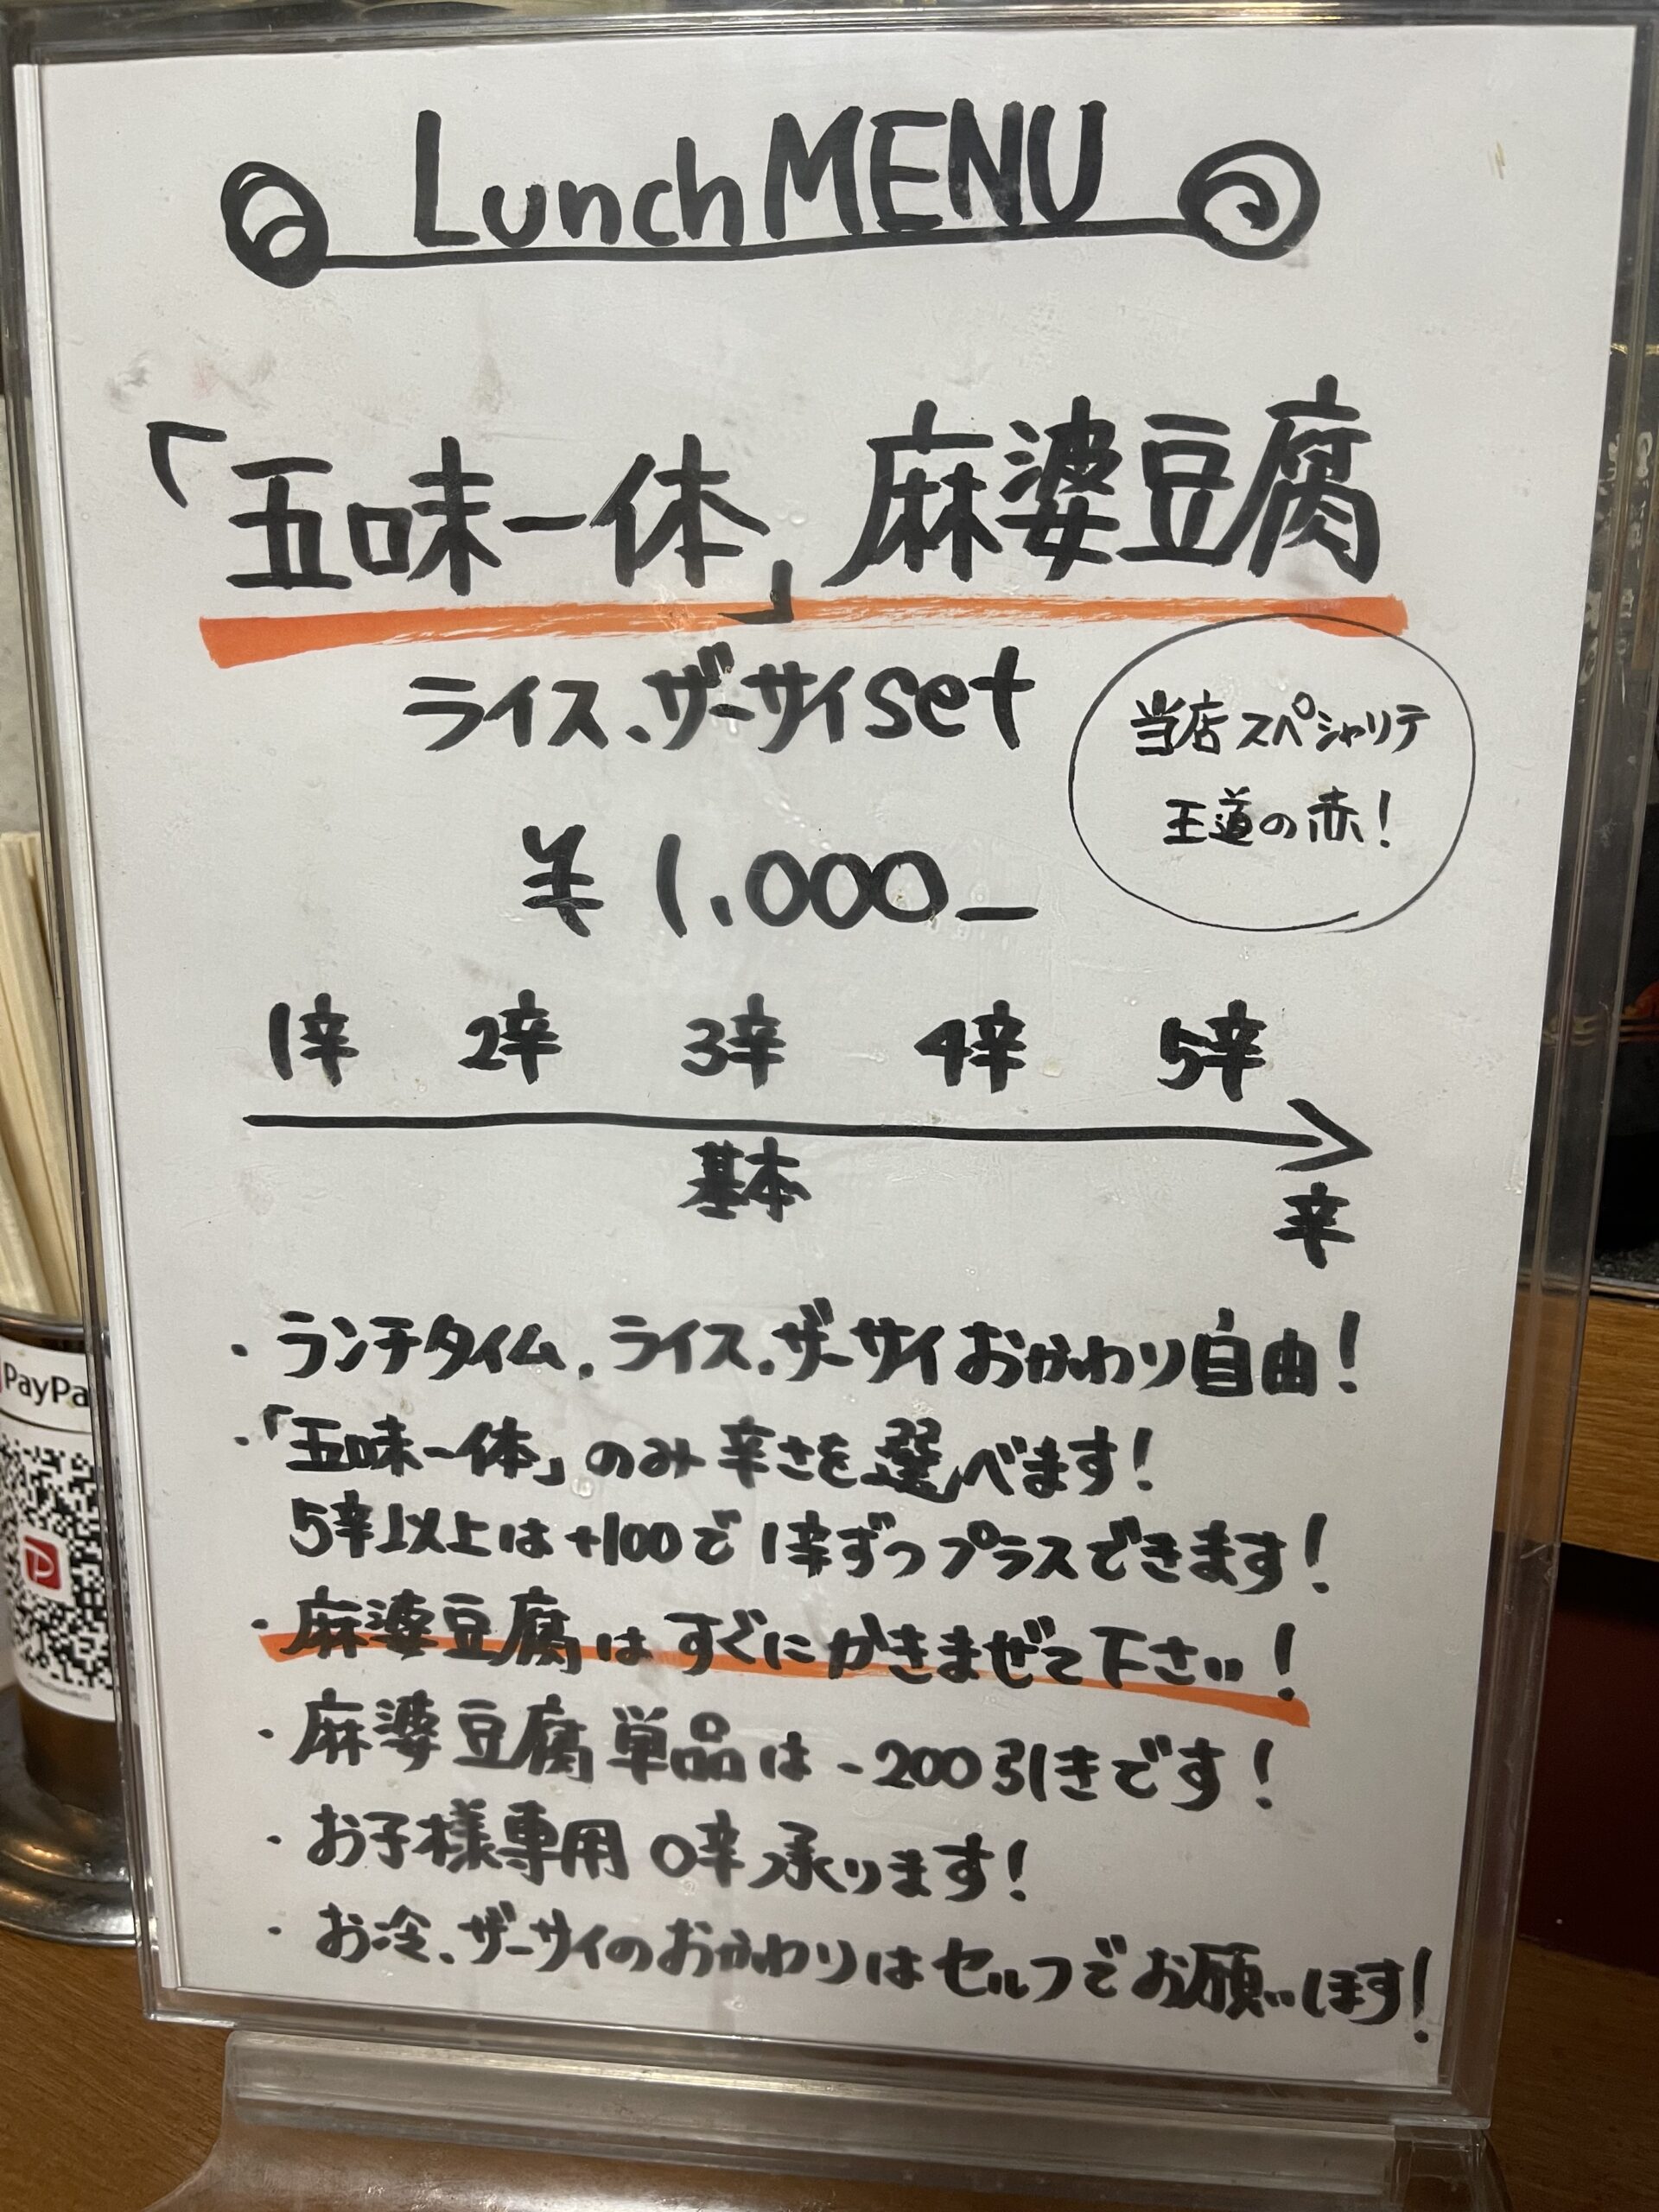 Lunch MENU
「五味一体」麻婆豆腐
ライス、ザーサイset
当店スペシャリテ
王道の赤！
¥1,000-
1辛 2辛 3辛 4辛 5辛
基本
辛
・ランチタイム、ライス、ザーサイおかわり自由！
・「五味一体」のみ辛さを選べます！
5辛以上は+100で1辛ずつプラスできます！
・麻婆豆腐はすぐにかきまぜて下さい！
・麻婆豆腐単品は-200引きです！
・お子様専用0辛承ります！
・お冷、ザーサイのおかわりはセルフでお願いします！
PayPa